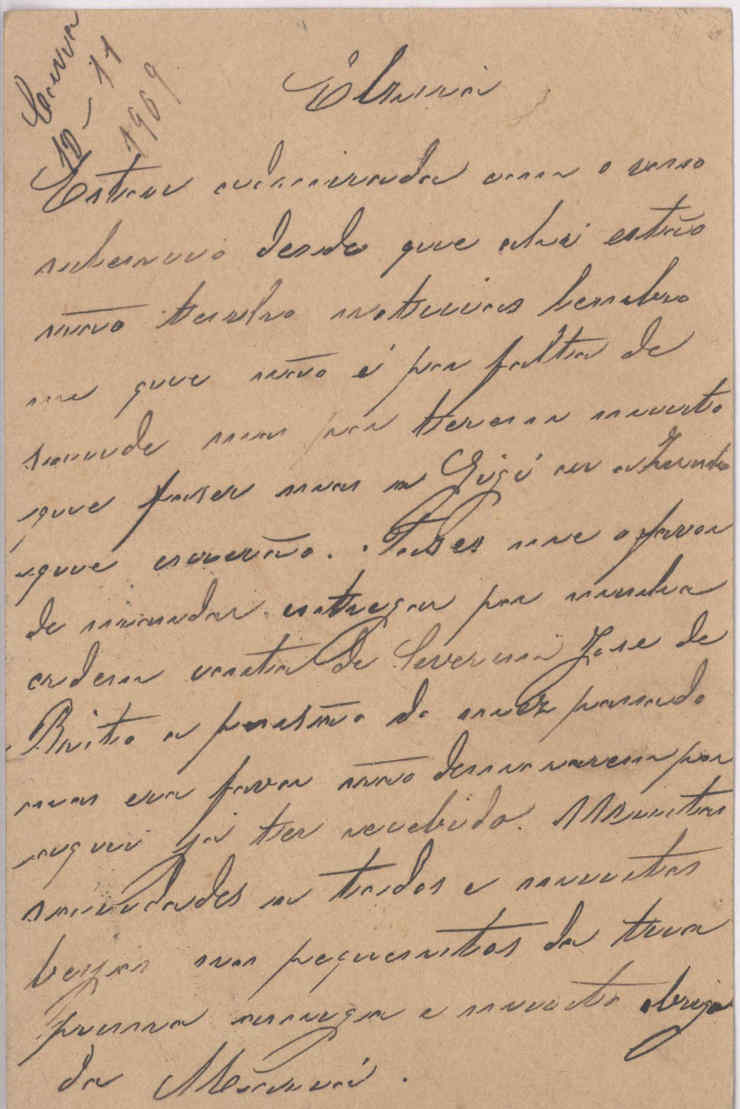 10-11
1909
Elvira
Estou admirada com o vosso
silencio desde que ahi estão
não tenho noticias lembro
me que não é por falta de
saude mas por terem muito
que fazer mas a Gigi ou a
que escreverão. Fazes me o favor
de mandar entregar por minha
ordem conta de Severino José de
Brito a pensão do mez passado
mas era favor não demorarem por
aqui já ter recebido. Muitas
saudades a todos e muitos
beijos nos pequenitos da tua
prima amiga e muito obriga
da